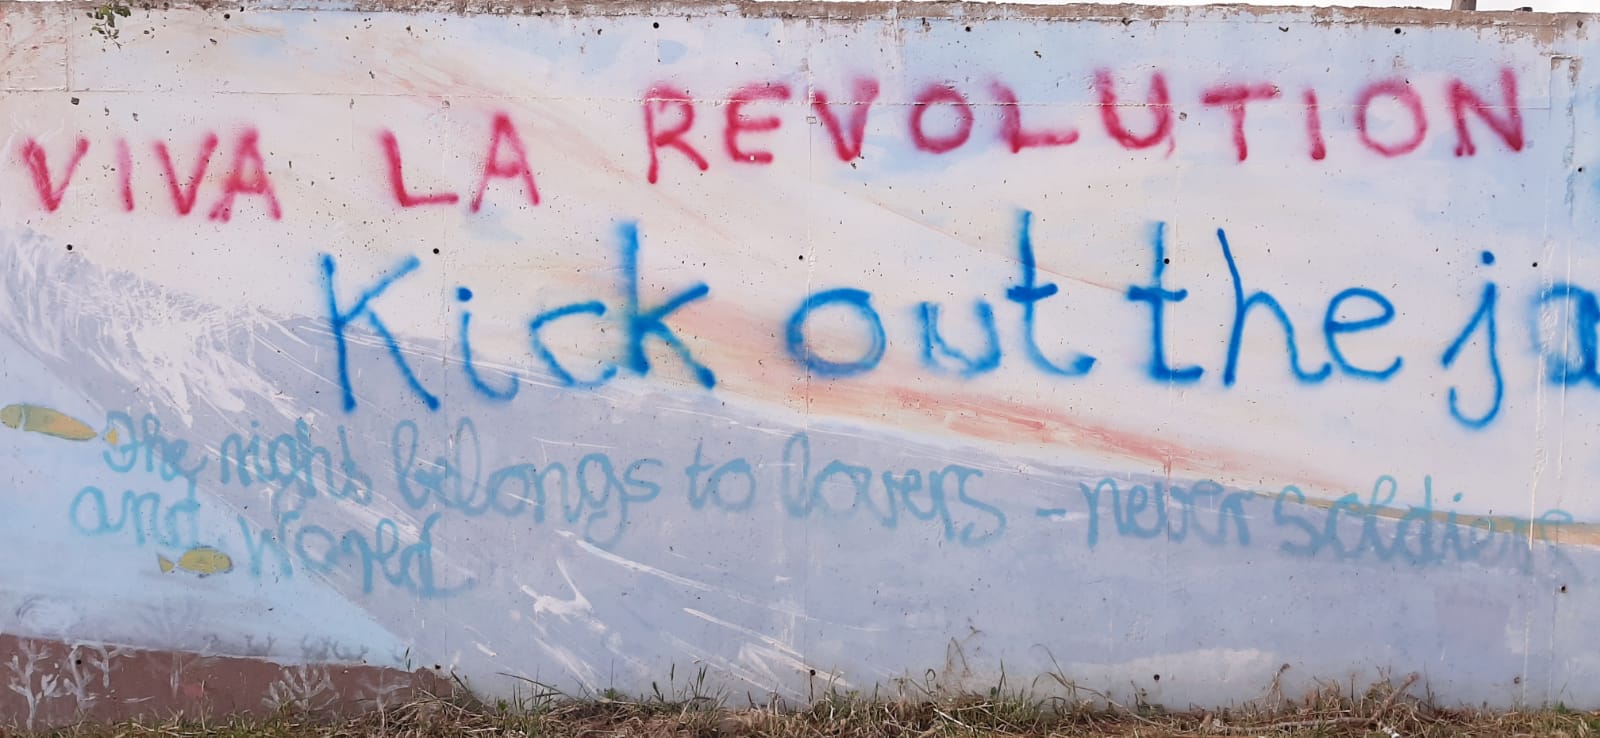 VIVA LA REVOLUTION
Kick out the ja
The night belongs to lovers - never soldiers
and World